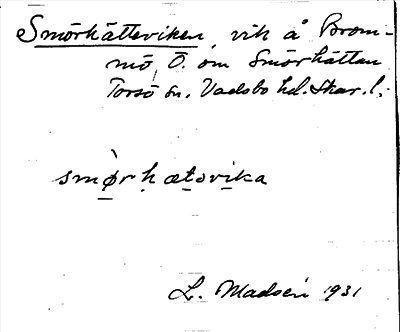 Smörhätteviken, vik å Brom-
mö, Ö. om Smörhättan
Torsö sn. Vadsbo hd. Skar. l.
smø̀rhætəvika
L. Madsén 1931